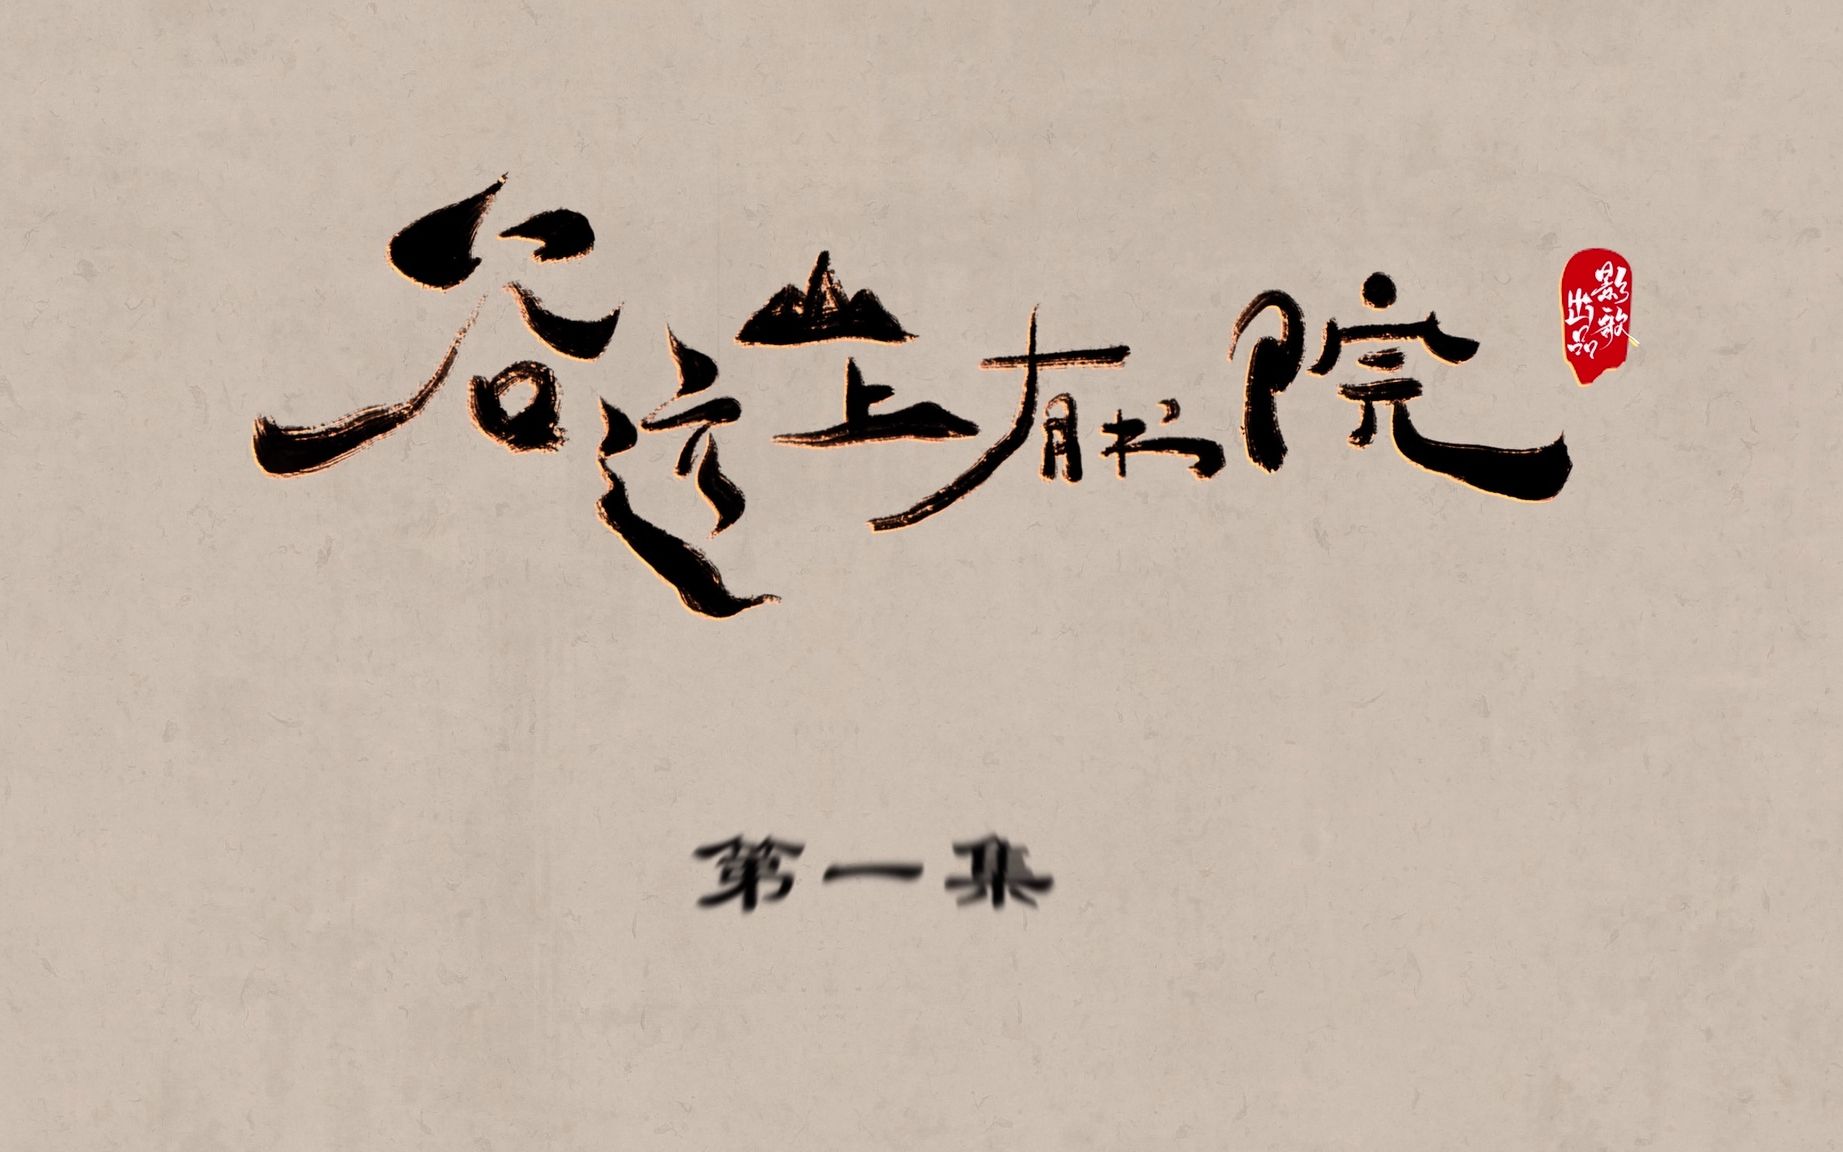 谷远山上有书院
影歌
出品
第一集